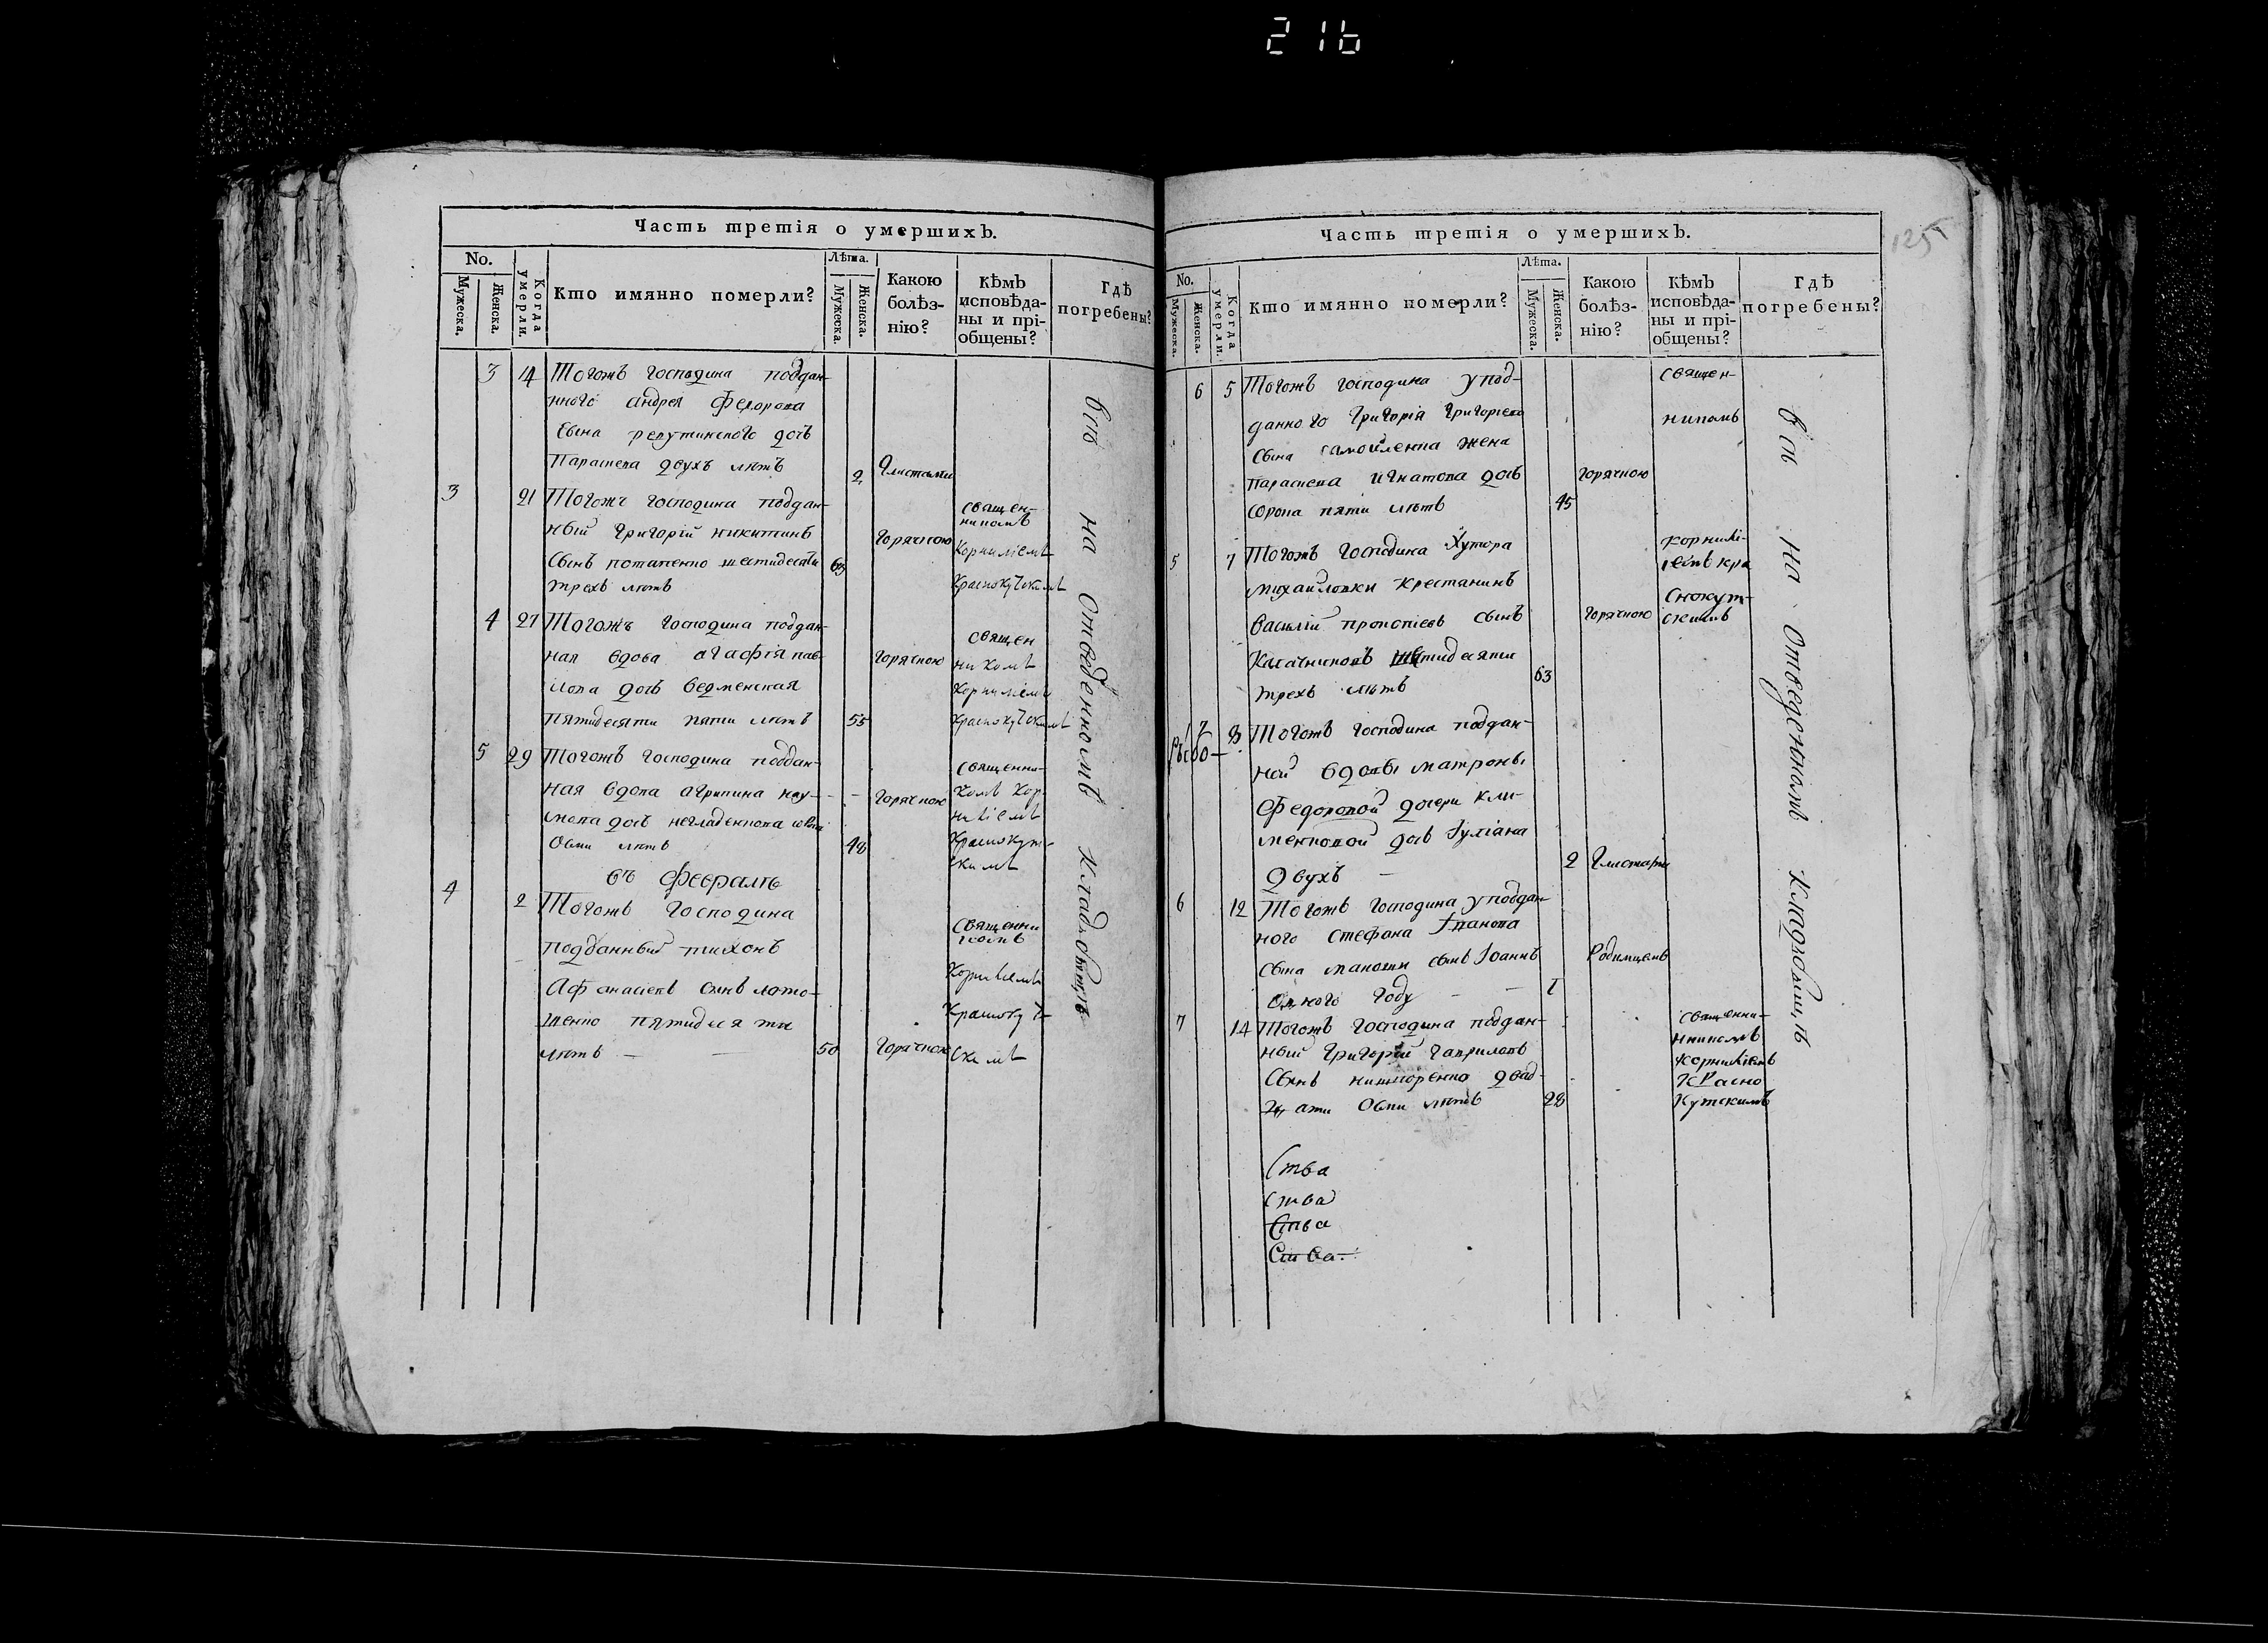 216
125
Часть третія о умершихъ.
No.
Мужеска.
Женска.
Когда умерли.
Кто имянно померли?
Лѣта.
Мужеска.
Женска.
Какою болѣз-
нію?
Кѣмъ
исповѣда-
ны и прі-
общены?
Гдѣ
погребены?
3 14 Тогожъ господина поддан-
нного андрея Федорова
Сына репутинского дочь
Параскева двухъ лѣтъ 2 Глистами
3 21 Тогожъ господина поддан-
ный Григорій никитинъ
Сынъ потапенко шестидесяти
трехъ лѣтъ 63 Горячкою
священ-
никомъ
Корниліемъ
Краснокутскимъ
4 27 Тогожъ господина поддан-
ная вдова агафія пав-
лова дочь ведменская
пятидесяти пяти лѣтъ 55 Горячкою
священ
никомъ
Корниліемъ
Краснокутскимъ
5 29 Тогожъ господина поддан-
ная вдова агрипина нау-
мова дочь
осми лѣтъ 48 Горячкою
священни-
комъ Кор-
ниліемъ
Краснокут-
скимъ
въ Февралѣ
4 2 Тогожъ господина
подданный тихонъ
Афанасіевъ сынъ
пятидесяти
лѣтъ 50 Горячкою
священни
комъ
Корниліемъ
Краснокут-
скимъ
всѣ на отведенномъ кладбищѣ
Часть третія о умершихъ.
No.
Мужеска.
Женска.
Когда умерли.
Кто имянно померли?
Лѣта.
Мужеска.
Женска.
Какою
болѣз-
нію?
Кѣмъ
исповѣда-
ны и прі-
общены?
Гдѣ
погребены?
6 5 Тогожъ господина у под-
данного Григорія Григоріева
сына самойленка жена
параскева игнатова дочь
сорока пяти лѣтъ 45 Горячкою
священ-
никомъ
5 7 Тогожъ господина Хутора
михайловки крестянинъ
василій прокопіевъ сынъ
трехъ лѣтъ 63 Горячкою
корнилі-
емъ кра
снокут-
скимъ
7 8 Тогожъ господина поддан-
ной вдовы матроны
Федоровой дочери кли-
менковой дочь Іуліана
двухъ 2 Глистами
6 12 Тогожъ господина у поддан-
ного стефана Іванова
сына сынъ Іоаннъ
одного году 1 Родимцемъ
7 14 Тогожъ господина поддан-
ный Григорій гавриловъ
Сынъ двад-
цати осми лѣтъ 28
священни-
нникомъ
корниліемъ
Красно
кутскимъ
всѣ на отведенномъ кладбищѣ
Ства
Ства
Ства
Ства